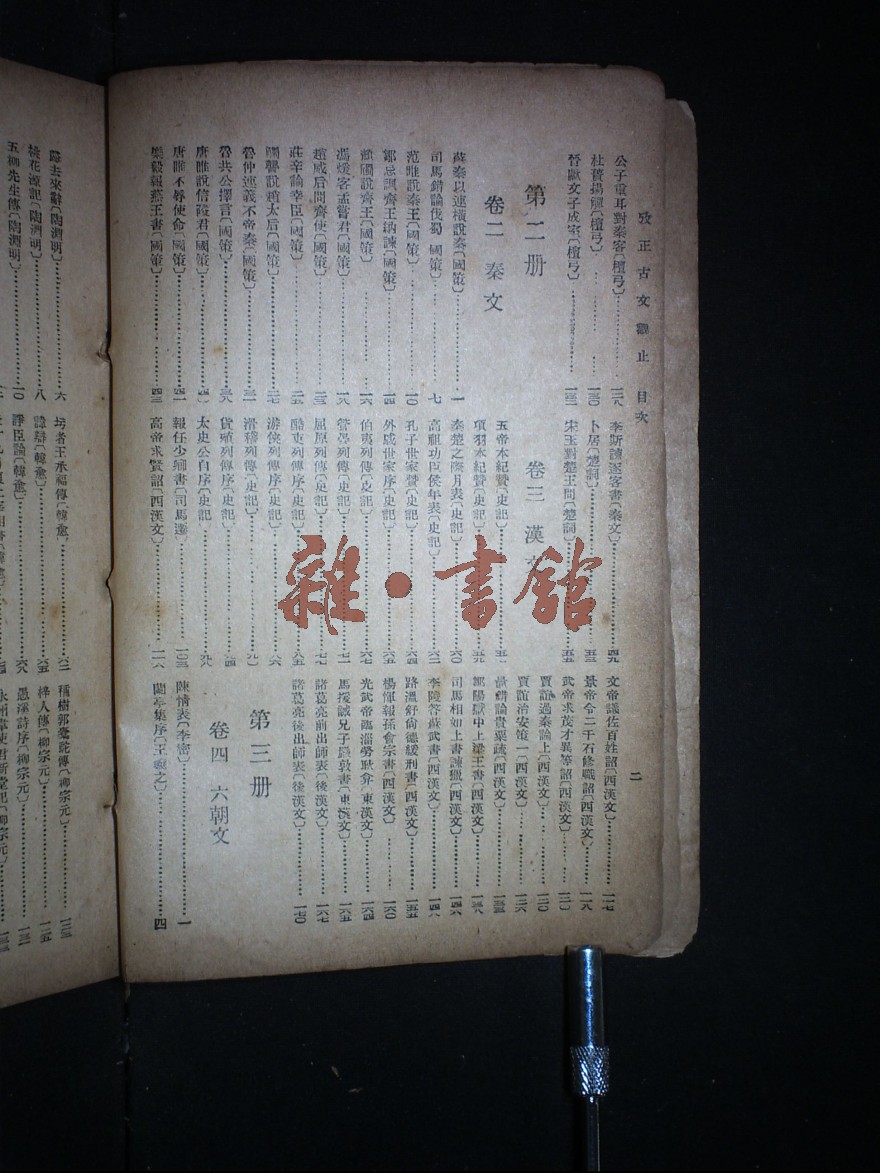 攷正古文觀止 目次
二
公子重耳對秦客〔檀弓〕
杜蕢揚觶〔檀弓〕
晉獻文子成室〔檀弓〕
第二册
卷二 秦文
蘇秦以連橫說秦〔國策〕 一
司馬錯論伐蜀〔國策〕 七
范雎說秦王〔國策〕 一〇
鄒忌諷齊王納諫〔國策〕 一四
顏斶說齊王〔國策〕 一六
馮煖客孟嘗君〔國策〕 一八
趙威后問齊使〔國策〕
莊辛論幸臣〔國策〕 二五
觸讋說趙太后〔國策〕 二七
魯仲連義不帝秦〔國策〕
魯共公擇言〔國策〕 三八
唐雎說信陵君〔國策〕
唐雎不辱使命〔國策〕 四一
樂毅報燕王書〔國策〕
李斯諫逐客書〔秦文〕 四九
卜居〔楚詞〕
宋玉對楚王問〔楚詞〕
卷三 漢文
五帝本紀贊〔史記〕
項羽本紀贊〔史記〕
秦楚之際月表〔史記〕 六〇
高祖功臣侯年表〔史記〕
孔子世家贊〔史記〕
外戚世家序〔史記〕 六五
伯夷列傳〔史記〕 六七
管晏列傳〔史記〕 七一
屈原列傳〔史記〕 七七
酷吏列傳序〔史記〕 八五
游俠列傳序〔史記〕 八六
滑稽列傳〔史記〕 九一
貨殖列傳序〔史記〕 九四
太史公自序〔史記〕 九八
報任少卿書〔司馬遷〕 一〇三
高帝求賢詔〔西漢文〕 一一六
文帝議佐百姓詔〔西漢文〕 一一七
景帝令二千石修職詔〔西漢文〕 一一八
武帝求茂才異等詔〔西漢文〕
賈誼過秦論上〔西漢文〕 一二〇
賈誼治安策一〔西漢文〕 一二六
鼂錯論貴粟疏〔西漢文〕
鄒陽獄中上梁王書〔西漢文〕 一三八
司馬相如上書諫獵〔西漢文〕 一四六
李陵答蘇武書〔西漢文〕 一四八
路溫舒尙德緩刑書〔西漢文〕 一五五
楊惲報孫會宗書〔西漢文〕 一六〇
光武帝臨淄勞耿弇〔東漢文〕 一六四
馬援誡兄子嚴敦書〔東漢文〕 一六五
諸葛亮前出師表〔後漢文〕 一六七
諸葛亮後出師表〔後漢文〕 一七〇
第三册
卷四 六朝文
陳情表〔李密〕 一
蘭亭集序〔王羲之〕 四
歸去來辭〔陶淵明〕 六
桃花源記〔陶淵明〕 八
五柳先生傳〔陶淵明〕 一〇
圬者王承福傳〔韓愈〕 六二
諱辯〔韓愈〕 六五
諍臣論〔韓愈〕 六八
種樹郭橐駝傳〔柳宗元〕
梓人傳〔柳宗元〕 一二五
愚溪詩序〔柳宗元〕 一三一
永州韋使君新堂記〔柳宗元〕
雜·書館